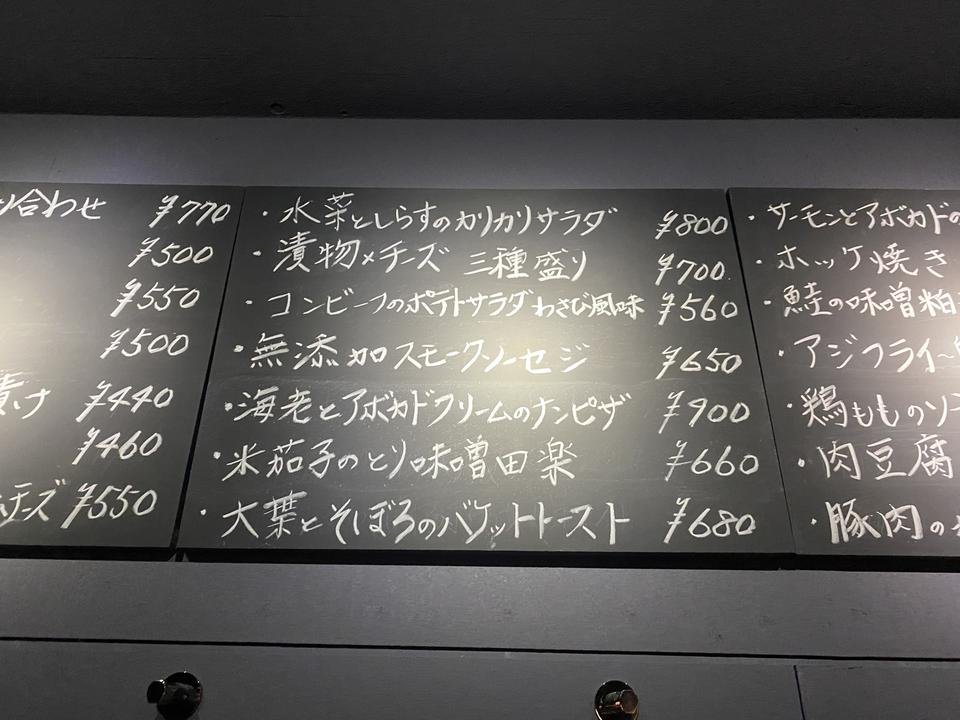 り合わせ ¥770
¥500
¥550
¥500
漬け ¥440
¥460
チーズ ¥550
・水菜としらすのカリカリサラダ ¥800
・漬物×チーズ 三種盛り ¥700
・コンビーフのポテトサラダわさび風味 ¥560
・無添加スモークソーセジ ¥650
・海老とアボカドクリームのナンピザ ¥900
・米茄子のとり味噌田楽 ¥660
・大葉とそぼろのバケットトースト ¥680
・サーモンとアボカドの
・ホッケ焼き
・鮭の味噌粕
・アジフライ
・鶏もものソ
・肉豆腐
・豚肉の